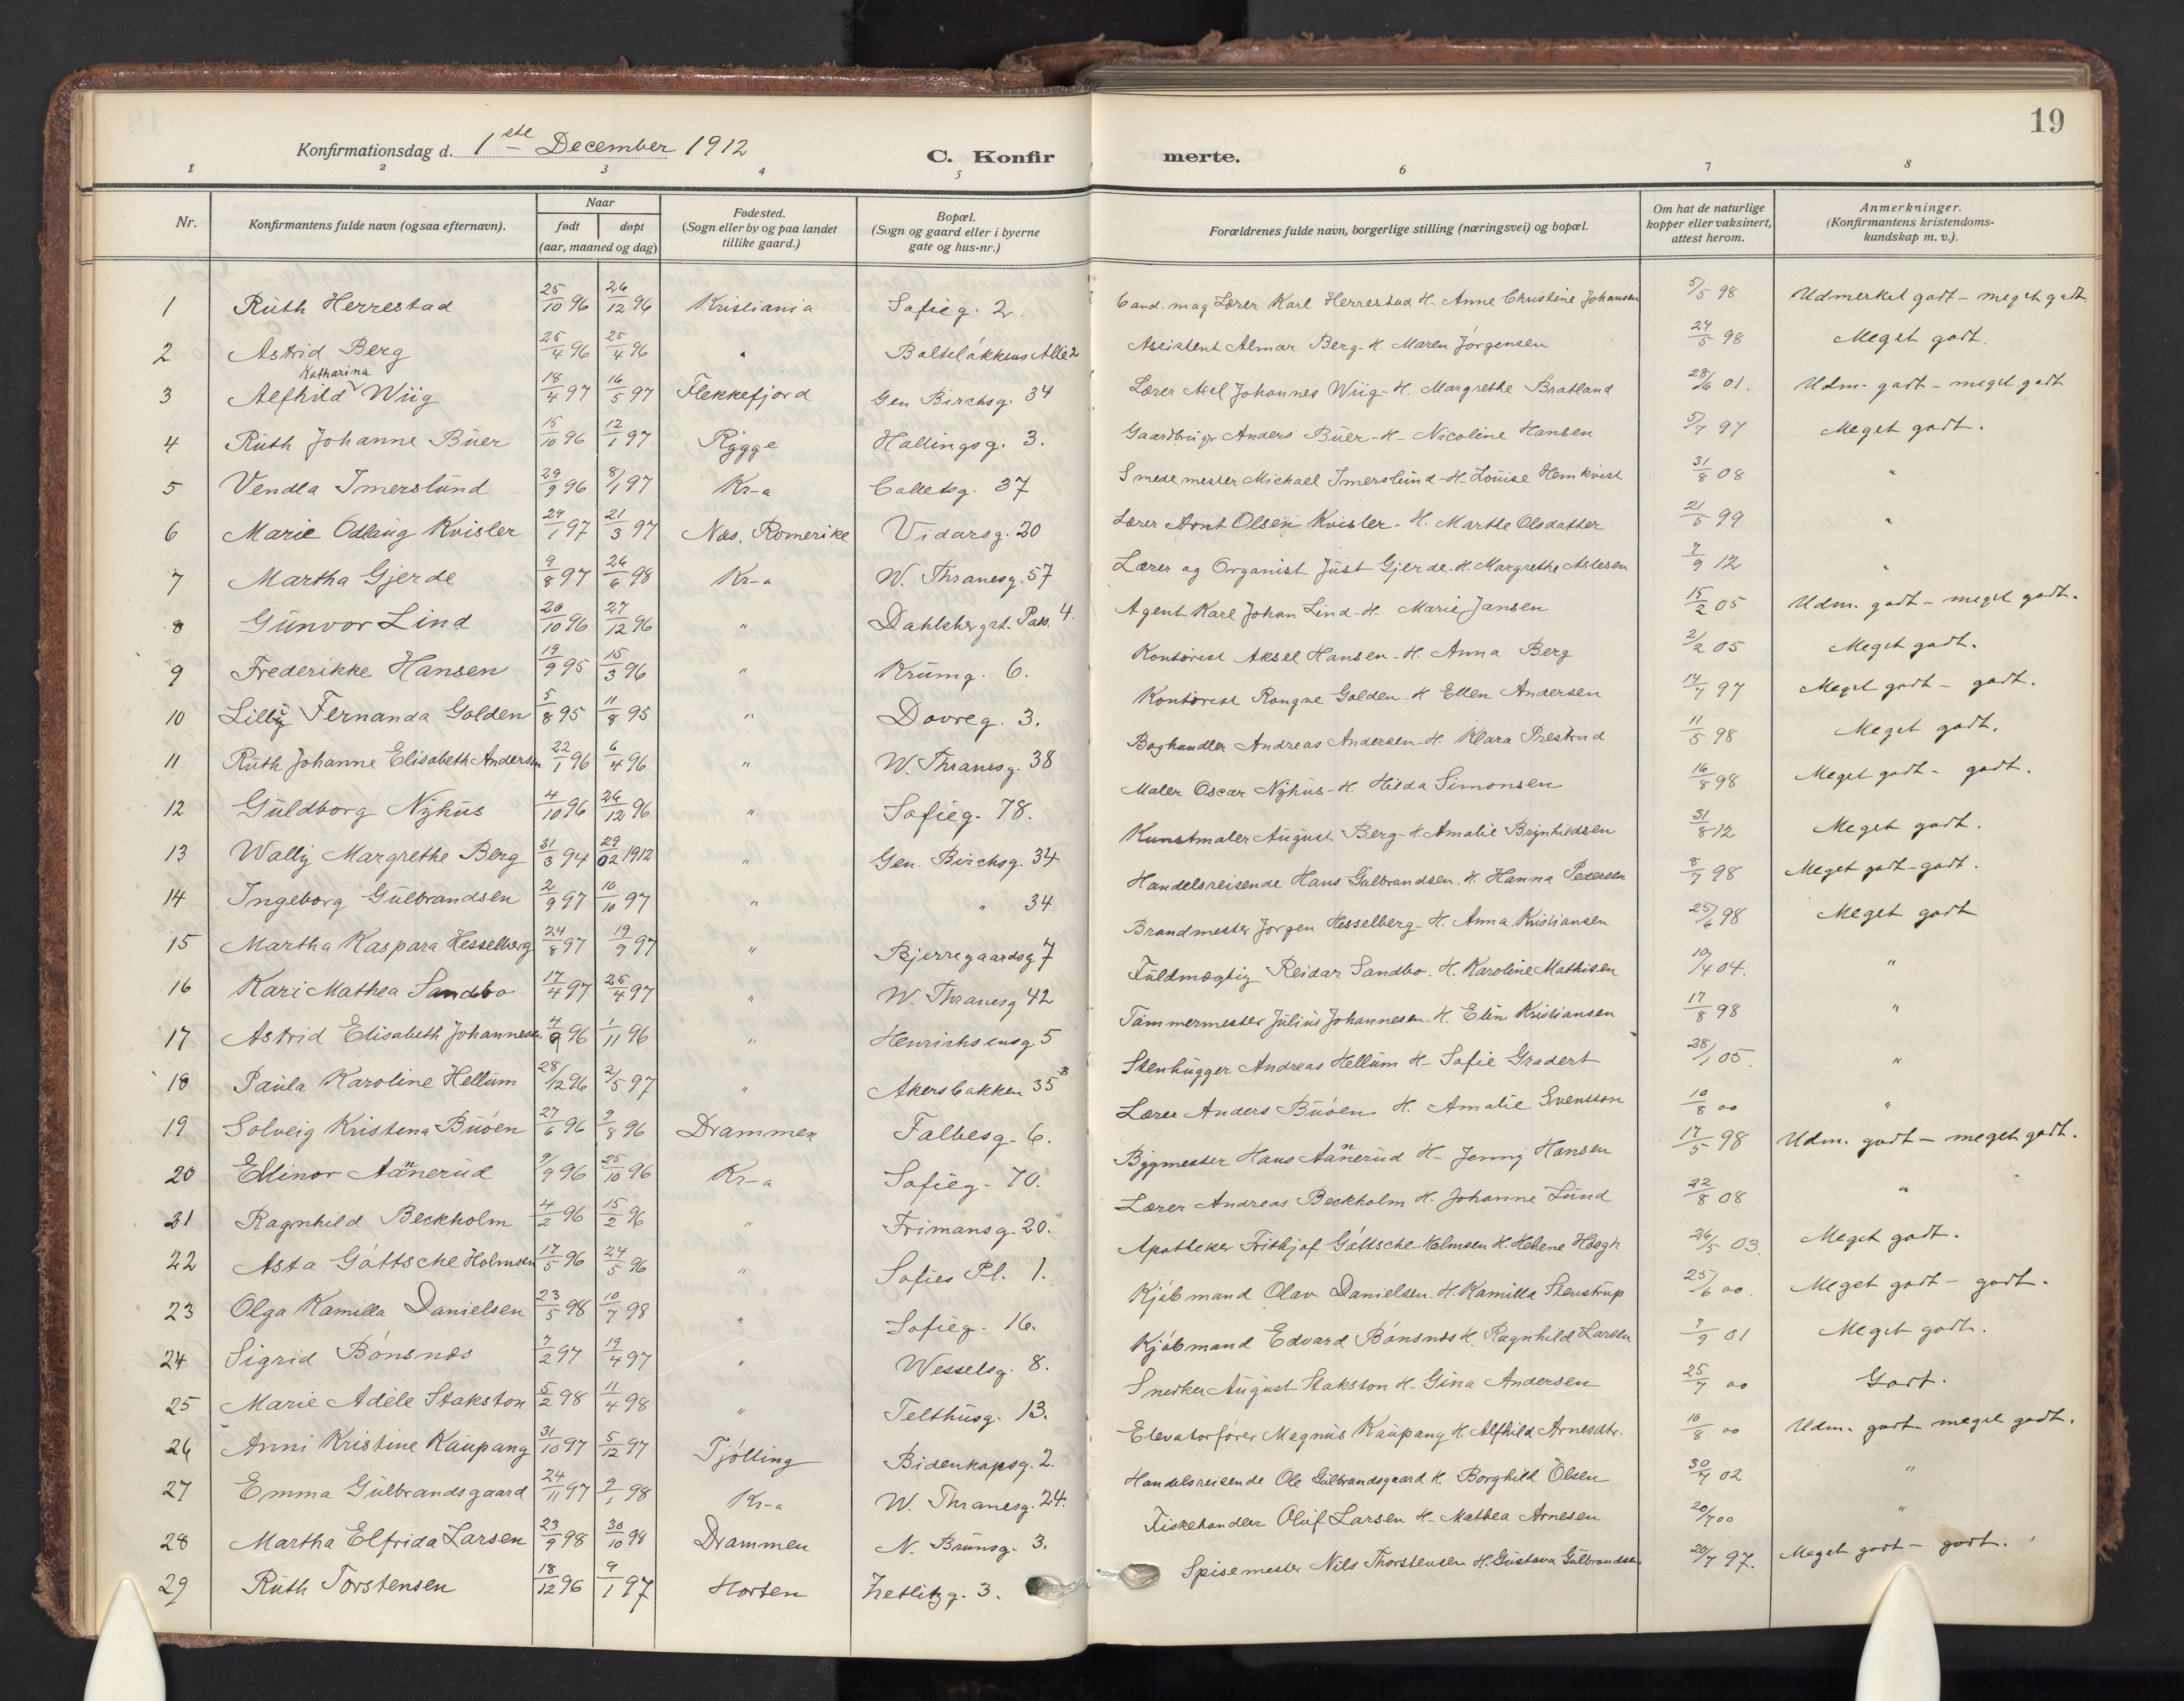 19
Konfirmationsdag d. 1ste December 1912
C. Konfirmerte.
1 2 3 4 5 6 7 8
Nr. | Konfirmantens fulde navn (ogsaa efternavn). | Naar født døpt (aar, maaned og dag) | Fødested. (Sogn eller by og paa landet tillike gaard.) | Bopæl. (Sogn og gaard eller i byerne gate og hus-nr.) | Forældrenes fulde navn, borgerlige stilling (næringsvei) og bopæl. | Om hat de naturlige kopper eller vaksinert, attest herom. | Anmerkninger. (Konfirmantens kristendomskundskap m. v.).
1 Ruth Herrestad 25/10 96 26/12 96 Kristiania Sofieg. 2. Cand. mag Lærer Karl Herrestad H. Anne Christine Johansen 5/5 98 Udmerket godt - meget godt
2 Astrid Berg 25/4 96 25/4 96 " Balteløkkens Allé 2 Assistent Almar Berg - H. Maren Jørgensen 24/5 98 Meget godt.
3 Alfhild Katharina Wiig 18/4 97 16/5 97 Flekkefjord Gen Birchsg. 34 Lærer Axel Johannes Wiig - H. Margrethe Bratland 28/6 01. Udm. godt - meget godt
4 Ruth Johanne Büer 15/10 96 12/1 97 Rygge Hallingsg. 3. Gaardbruger Anders Büer - H - Nicoline Hansen 5/7 97 Meget godt.
5 Vendla Imerslund 29/9 96 8/1 97 Kr-a Colletsg. 37 Smedemester Michael Imerslund - H. Louise Hemkvist 31/8 08 "
6 Marie Odlaug Kvisler 29/1 97 21/3 97 Næs, Romerike Vidarsg. 20 Lærer Arnt Olsen Kvisler - H. Marthe Olsdatter 21/5 99 "
7 Martha Gjerde 9/8 97 26/6 98 Kr-a W. Thranesg. 57 Lærer og Organist Just Gjerde - H. Margrethe Aslesen 7/9 12 "
8 Gunvor Lind 20/10 96 27/12 96 " Dahlsbergst. Pass. 4. Agent Karl Johan Lind - H. Marie Jansen 15/2 05 Udm. godt - meget godt.
9 Frederikke Hansen 19/9 95 15/3 96 " Krumg. 6. Kontorist Aksel Hansen - H. Anna Berg 2/2 05 Meget godt.
10 Lilly Fernanda Golden 5/8 95 11/8 95 " Dovreg. 3. Kontorist Rongve Golden - H Ellen Andersen 14/7 97 Meget godt - godt.
11 Ruth Johanne Elisabeth Andersen 22/1 96 6/4 96 " W. Thranesg. 38 Boghandler Andreas Andersen - H. Klara Prestrud 11/5 98 Meget godt.
12 Guldborg Nyhus 4/10 96 26/12 96 " Sofieg. 78. Maler Oscar Nyhus - H. Hilda Simonsen 16/8 98 Meget godt - godt.
13 Wally Margrethe Berg 31/3 94 29/02 1912 " Gen. Birchsg. 34 Kunstmaler August Berg - H. Amalie Brynhildsen 31/8 12 Meget godt.
14 Ingeborg Gulbrandsen 2/9 97 10/10 97 " " 34 Handelsreisende Hans Gulbrandsen - H. Hanna Pedersen 8/7 98 Meget godt - godt.
15 Martha Kaspara Hesselberg 24/8 97 19/9 97 " Bjerregaardsg 7 Brandmester Jørgen Hesselberg - H. Anna Kristiansen 25/6 98 Meget godt
16 Kari Mathea Sandbo 17/4 97 25/4 97 " W. Thranesg 42 Fuldmægtig Reidar Sandbo - H. Karoline Mathisen 19/4 04. "
17 Astrid Elisabeth Johannesen 4/9 96 1/11 96 " Henrichsensg 5 Tømmermester Julius Johannesen - H. Elin Kristiansen 17/8 98 "
18 Paula Karoline Hellum 28/12 96 2/5 97 " Akersbakken 35 B Stenhugger Andreas Hellum H - Sofie Gradert 28/1 05. "
19 Solveig Kristena Buøen 27/6 96 9/8 96 Drammen Falbesg. 6. Lærer Anders Buøen H. Amalie Svensson 10/8 00 "
20 Ellinor Aanerud 9/9 96 25/10 96 Kr-a Sofieg. 70. Bygmester Hans Aanerud H - Jenny Hansen 17/5 98 Udm. godt - meget godt.
21 Ragnhild Beckholm 4/2 96 15/2 96 " Frimansg. 20. Lærer Andreas Beckholm H. Johanne Lund 22/8 08 "
22 Asta Gøttsche Holmsen 17/5 96 24/5 96 " Sofies Pl. 1. Apotheker Frithjof Gøttsche Holmsen H. Helene Høegh 26/5 03. Meget godt.
23 Olga Kamilla Danielsen 23/5 98 10/7 98 " Sofieg. 16. Kjøbmand Olav Danielsen - H. Kamilla Stenstrup 25/6 00. Meget godt - godt.
24 Sigrid Bønsnæs 7/2 97 19/4 97 " Wesselsg. 8. Kjøbmand Edvard Bønsnæs H. Ragnhild Larsen 7/9 01 Meget godt.
25 Marie Adéle Stakston 5/2 98 11/4 98 " Telthusg. 13. Snedker August Stakston H - Gina Andersen 25/7 00 Godt.
26 Anni Kristine Kaupang 31/10 97 5/12 97 Tjølling Bidenkapsg. 2. Elevatorfører Magnus Kaupang H. Alfhild Arnesdtr. 10/8 00 Udm. godt - meget godt.
27 Emma Gulbrandsgaard 24/11 97 9/1 98 Kr-a W. Thranesg. 24. Handelsreisende Ole Gulbrandsgaard H. Borghild Olsen 30/7 02 "
28 Martha Elfrida Larsen 23/9 98 30/10 98 Drammen N. Brunsg. 3. Fiskehandler Oluf Larsen H - Mathea Arnesen 20/7 00 "
29 Ruth Torstensen 18/12 96 9/1 97 Horten Zetlitzg. 3. Spisemester Nils Thorstensen H. Gustava Gulbrandsen 20/7 97. Meget godt - godt.